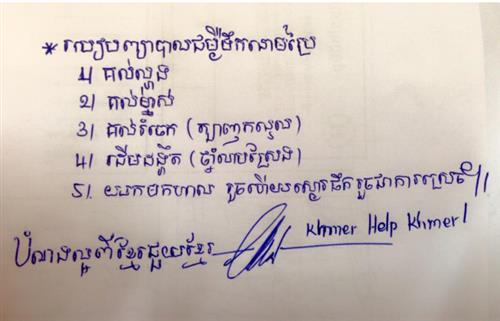 * របៀបព្យាបាលជម្ងឺទឹកនោមប្រៃ
1/ គល់ល្ហុង
2/ គល់ម្នាស់
3/ គល់រំចេក (ត្បាញកន្ទេល)
4/ ដើមដង្ហិត (ច្នាំលាបស្រែង)
5/. យកមកហាល រួចហើយស្ងោរផឹក រួចជាការស្រេច ។
បំណងល្អពីខ្មែរជួយខ្មែរ Khmer Help Khmer!